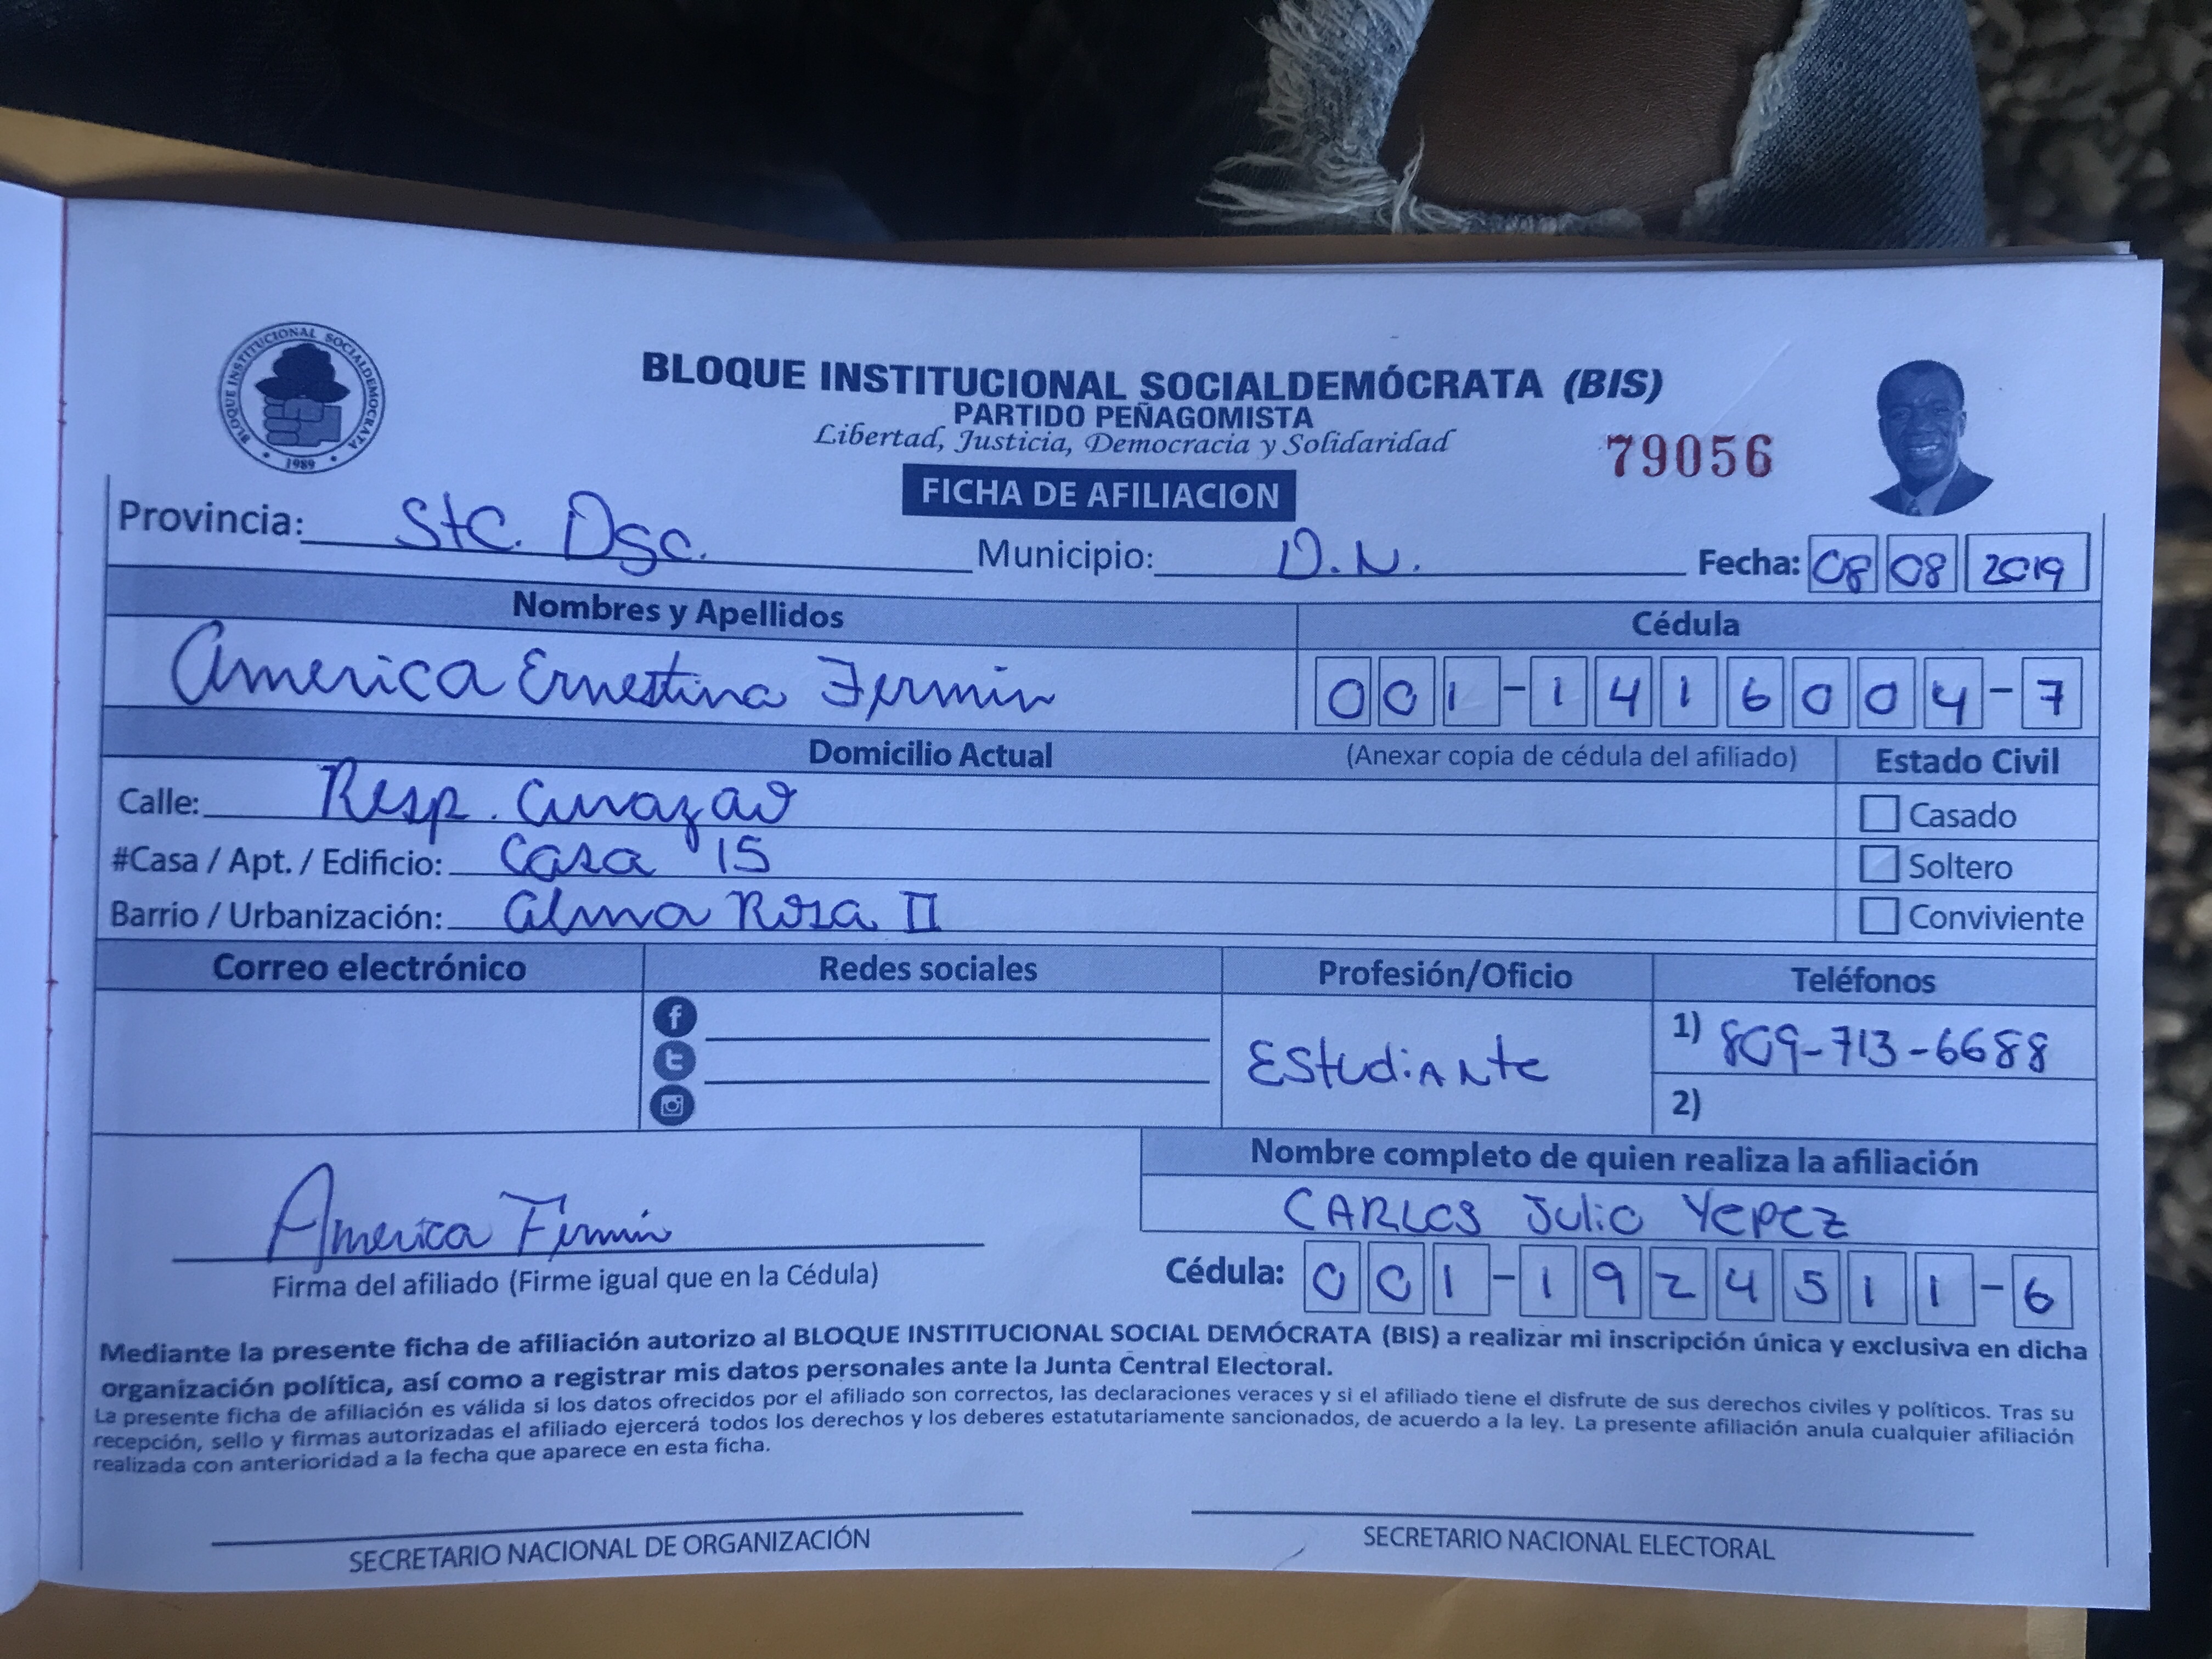 BLOQUE INSTITUCIONAL SOCIALDEMÓCRATA
1989
BLOQUE INSTITUCIONAL SOCIALDEMÓCRATA (BIS)
PARTIDO PEÑAGOMISTA
Libertad, Justicia, Democracia y Solidaridad
79056
FICHA DE AFILIACION
Provincia: Sto. Dgo. Municipio: D.N. Fecha: 08 08 2019
Nombres y Apellidos Cédula
America Ernestina Fermin 001-1416004-7
Domicilio Actual (Anexar copia de cédula del afiliado) Estado Civil
Calle: Resp. Curazao Casado
#Casa / Apt. / Edificio: Casa 15 Soltero
Barrio / Urbanización: Alma Rosa II Conviviente
Correo electrónico Redes sociales Profesión/Oficio Teléfonos
Estudiante 1) 809-713-6688
2)
Nombre completo de quien realiza la afiliación
CARLOS Julio YEPEZ
America Fermin
Firma del afiliado (Firme igual que en la Cédula) Cédula: 001-1924511-6
Mediante la presente ficha de afiliación autorizo al BLOQUE INSTITUCIONAL SOCIAL DEMÓCRATA (BIS) a realizar mi inscripción única y exclusiva en dicha
organización política, así como a registrar mis datos personales ante la Junta Central Electoral.
La presente ficha de afiliación es válida si los datos ofrecidos por el afiliado son correctos, las declaraciones veraces y si el afiliado tiene el disfrute de sus derechos civiles y políticos. Tras su
recepción, sello y firmas autorizadas el afiliado ejercerá todos los derechos y los deberes estatutariamente sancionados, de acuerdo a la ley. La presente afiliación anula cualquier afiliación
realizada con anterioridad a la fecha que aparece en esta ficha.
SECRETARIO NACIONAL DE ORGANIZACIÓN SECRETARIO NACIONAL ELECTORAL